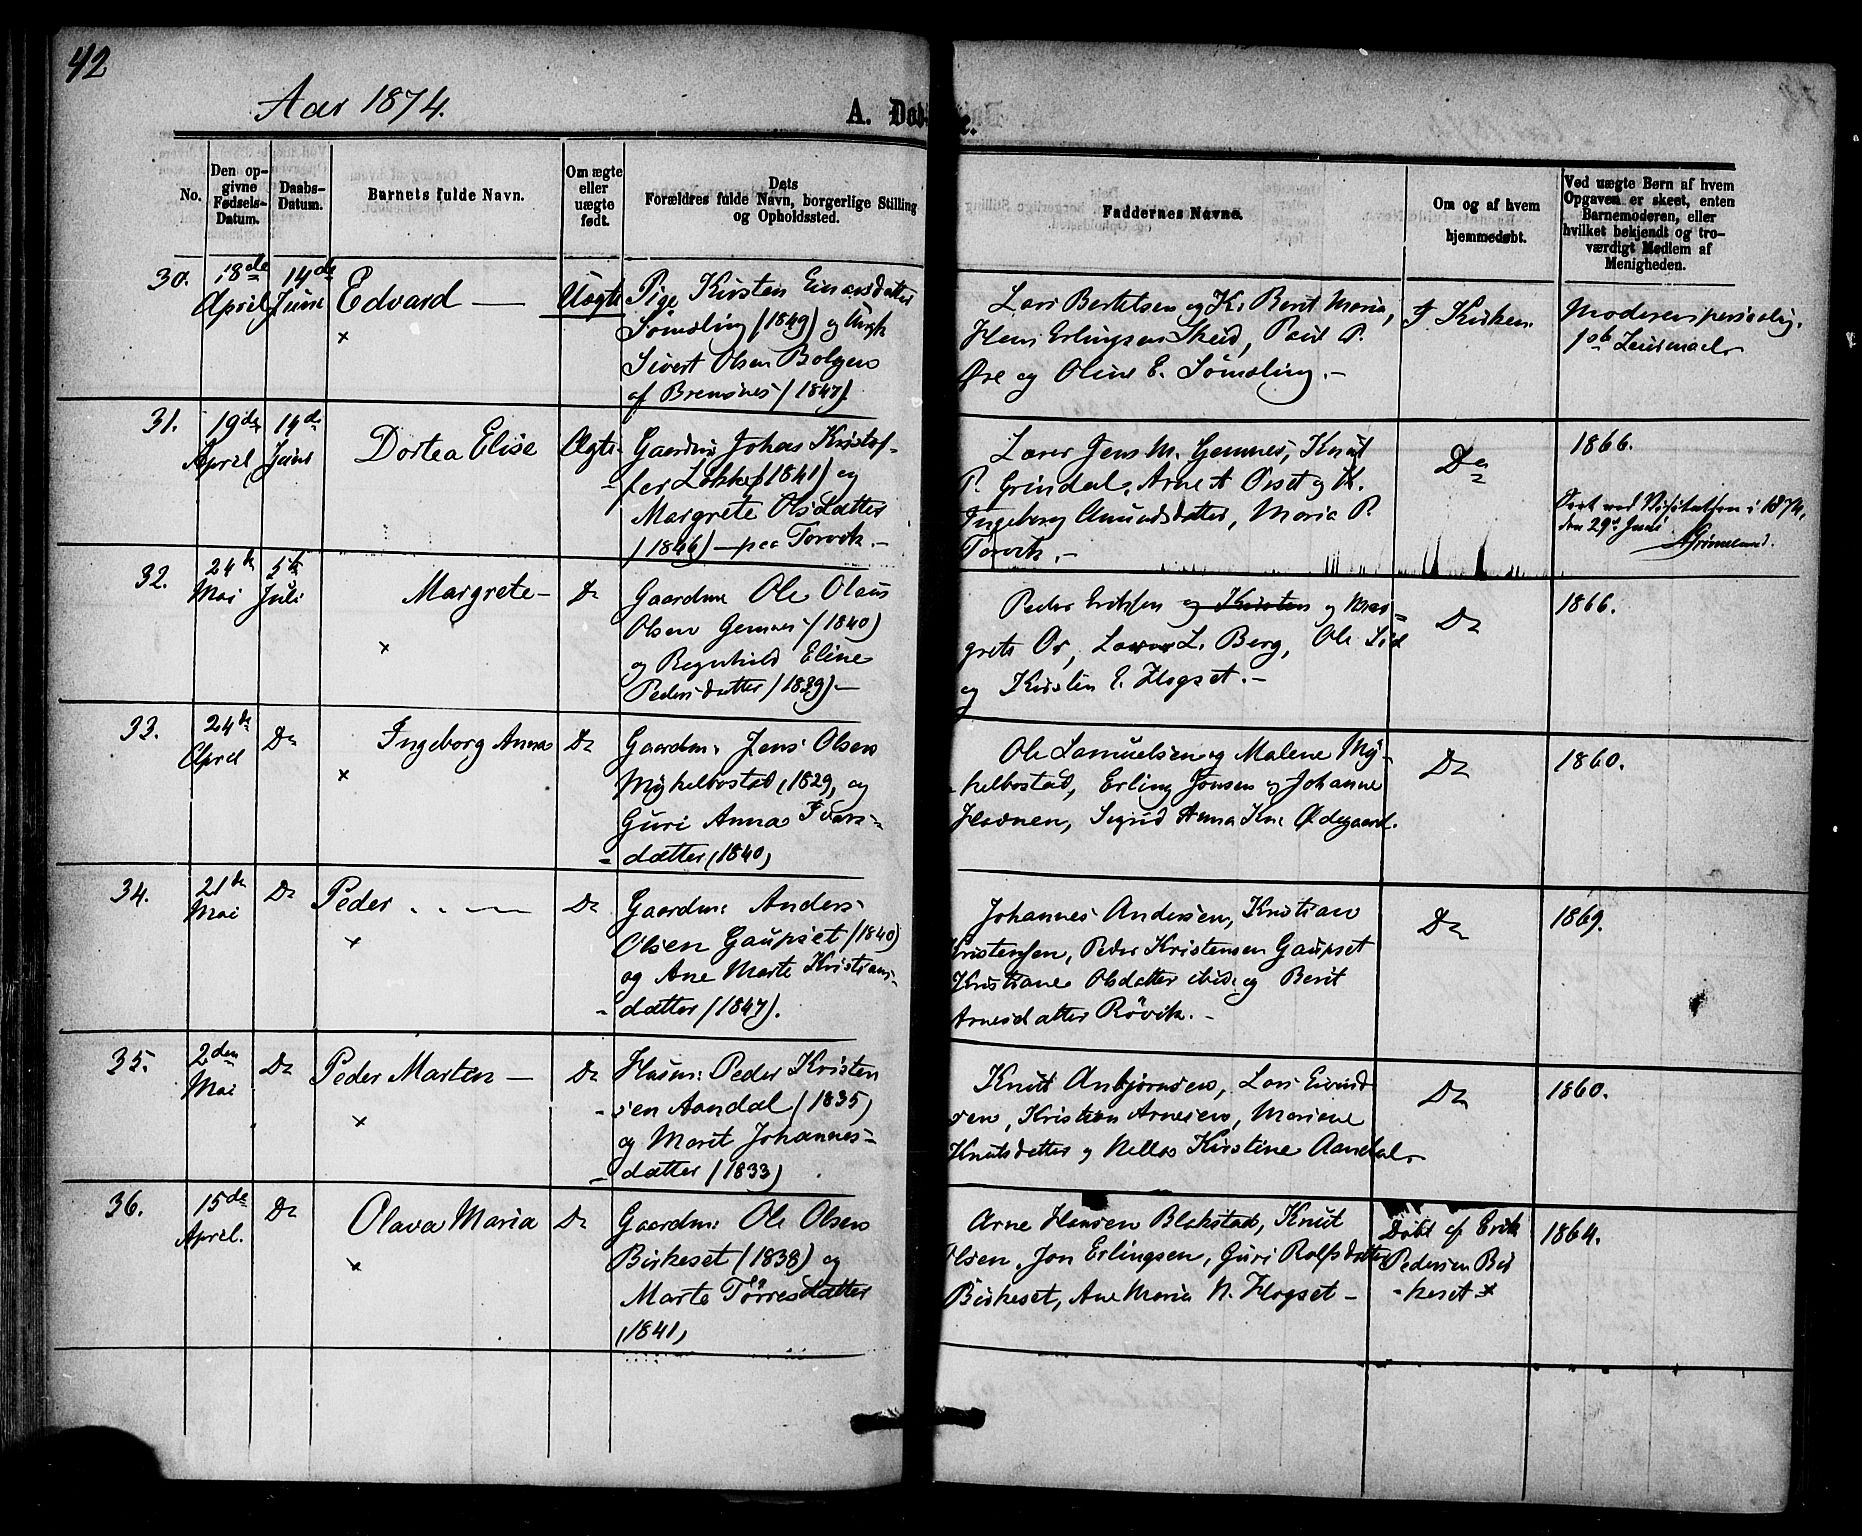 42
Aar 1874.
A. Død
e.
No.
Den op-
givne
Fødsels-
Datum.
Daabs-
Datum.
Barnets fulde Navn.
Om ægte
eller
uægte
født.
Dets
Forældres fulde Navn, borgerlige Stilling
og Opholdssted.
Faddernes Navne.
Om og af hvem
hjemmedøbt.
Ved uægte Børn af hvem
Opgaven er skeet, enten
Barnemoderen, eller
hvilket bekjendt og tro-
værdigt Medlem af
Menigheden.
30.
18de
April
14de
Juni
Edvard —
×
Uægte
Pige Kirsten Einarsdatter
Sømdling (1849) og Ungk
Sivert Olsen Bolgen
af Bremsnes (1847).
Lars Bertelsen og K. Berit Maria,
Hans Erlingsen Skud, Paul P.
Øre og Oline E. Sømdling. –
I Kirken
Moderen personlig.
1ste Leiermaal
31.
19de
April
14de
Juni
Dortea Elise
Ægte
Gaardm: Johan Kristof-
fer Løkke (1841) og
Margrete Olsdatter
(1846) – paa Torvik. –
Lærer Jens M. Gemnes, Knut
P. Grindal, Arne A Orset og K.
Ingeborg Amundsdatter, Maria P.
Torvik. –
Do
1866.
Seet ved Visitatsen i 1874,
den 29de Juni
AGrimelund.
32.
24de
Mai
5te
Juli
Margrete –
×
Do
Gaardm Ole Olaus
Olsen Gemnes (1840)
og Regnhild Eline
Pedersdatter (1839) –
Peder Eriksen og Kirsten og Mar-
grete Or, Lærer L. Berg, Ole Sid
og Kirstin E. Hogset. –
Do
1866.
33.
24de
April
Do
Ingeborg Anna
×
Do
Gaardm: Jens Olsen
Mykelbostad, 1829, og
Guri Anna Ivars-
datter, 1840,
Ole Samuelsen og Malene My-
kelbostad, Erling Jonsen og Johanne
Hadnen, Sigrid Anna Kn. Ødegaard.
Do
1860.
34.
21de
Mai
Do
Peder . . –
×
Do
Gaardm: Anders
Olsen Gaupset (1840)
og Ane Marte Kristians-
datter (1847).
Johannes Andersen, Kristian
Kristensen, Peder Kristensen Gaupset
Kristiane Olsdatter ibid. og Berit
Arnesdatter Røvik. –
Do
1869.
35.
2den
Mai
Do
Peder Martin –
×
Do
Husm: Peder Kristen
sen Aandal (1835)
og Marit Johannes-
datter (1833)
Knut Anbjørnsen, Lars Eivind
sen, Kristian Arnesen, Mariane
Knutsdatter og Kirstine Aandal.
Do
1860.
36.
15de
April.
Do
Olava Maria
×
Do
Gaardm: Ole Olsen
Birkeset (1838) og
Marte Tørresdatter
, 1841,
Arne Hansen Blakstad, Knut
Olsen, Jon Erlingsen, Guri Rolfsdatter
Birkeset, Ane Maria N. Hogset –
Døbt af Erik
Pedersen Bir
keset ×
1864.